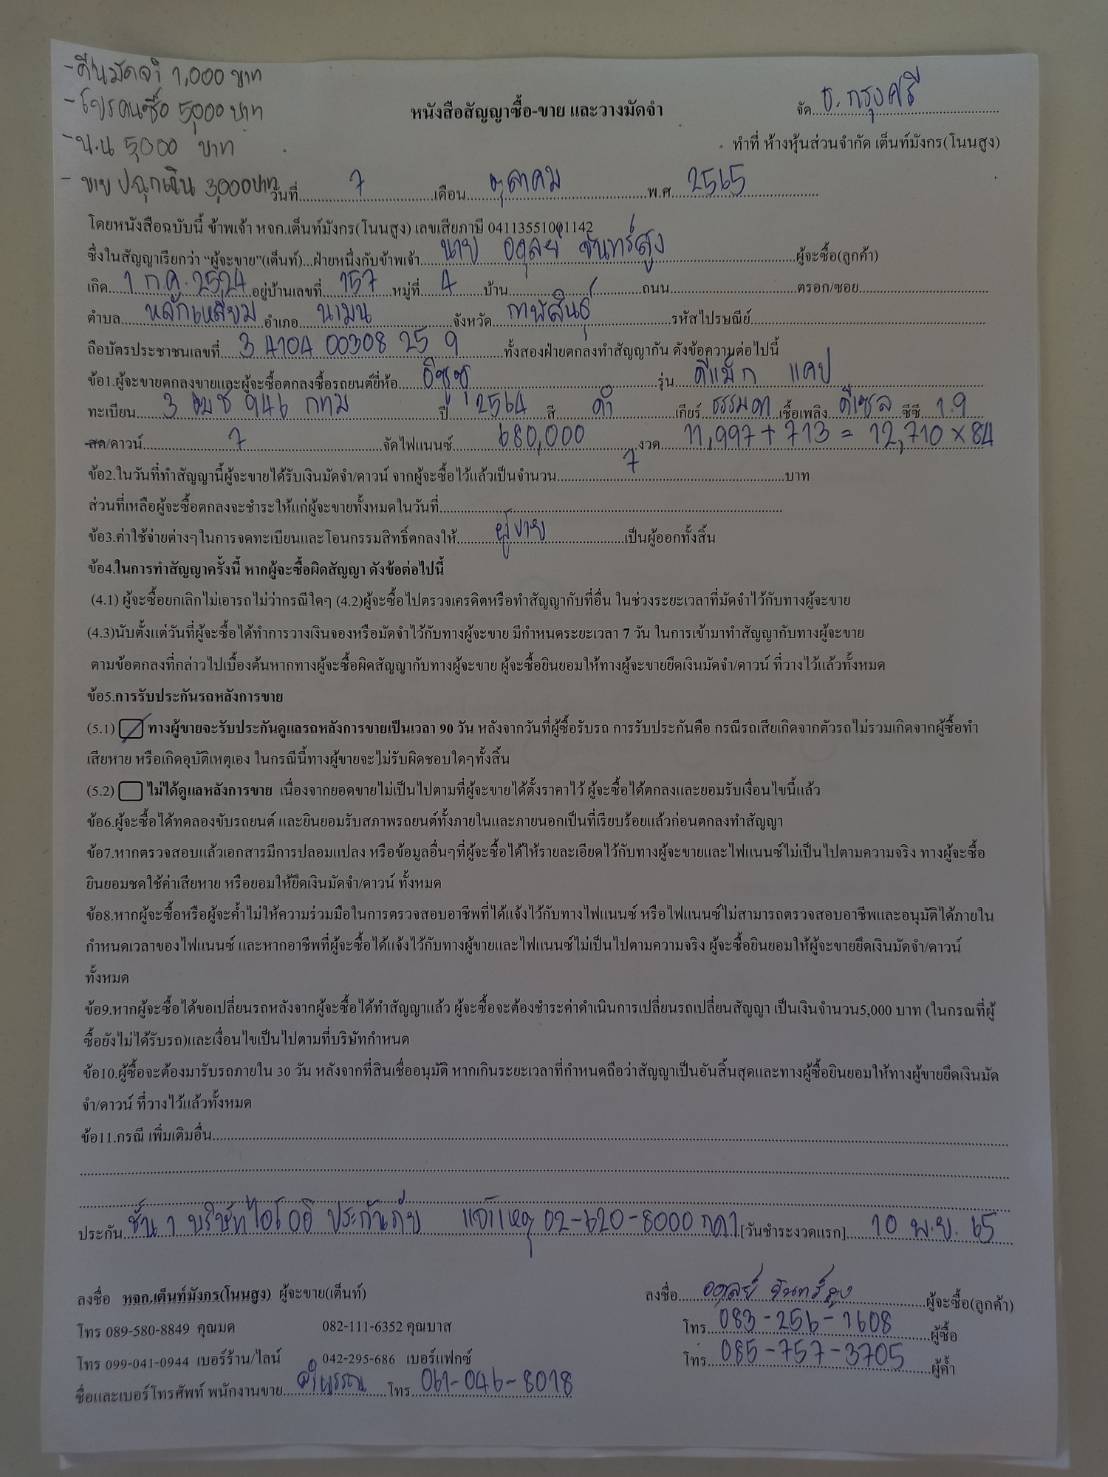 - คืนมัดจำ 1,000 บาท
- โปรคนซื้อ 5,000 บาท
- น.น 5,000 บาท
- ขาย ปลุกเงิน 3,000 บาท
หนังสือสัญญาซื้อ-ขาย และวางมัดจำ
จัด ธ. กรุงศรี
ทำที่ ห้างหุ้นส่วนจำกัด เต็นท์มังกร(โนนสูง)
วันที่ 7 เดือน ตุลาคม พ.ศ. 2565
โดยหนังสือฉบับนี้ ข้าพเจ้า หจก.เต็นท์มังกร(โนนสูง) เลขเสียภาษี 04113551001142
ซึ่งในสัญญาเรียกว่า "ผู้จะขาย"(เต็นท์)...ฝ่ายหนึ่งกับข้าพเจ้า นาย อดุลย์ จันทร์สูง ผู้จะซื้อ(ลูกค้า)
เกิด 1 ก.ค. 2524 อยู่บ้านเลขที่ 157 หมู่ที่ 4 บ้าน ถนน ตรอก/ซอย
ตำบล หลักเหลี่ยม อำเภอ นามน จังหวัด กาฬสินธุ์ รหัสไปรษณีย์
ถือบัตรประชาชนเลขที่ 3 4104 00308 25 9 ทั้งสองฝ่ายตกลงทำสัญญากัน ดังข้อความต่อไปนี้
ข้อ1.ผู้จะขายตกลงขายและผู้จะซื้อตกลงซื้อรถยนต์ยี่ห้อ อีซูซุ รุ่น ดีแม็ก แคป
ทะเบียน 3 ฒช 946 กทม ปี 2564 สี ดำ เกียร์ ธรรมดา เชื้อเพลิง ดีเซล ซีซี 1.9
สด/ดาวน์ 7 จัดไฟแนนซ์ 680,000 งวด 11,997 + 713 = 12,710 × 84
ข้อ2.ในวันที่ทำสัญญานี้ผู้จะขายได้รับเงินมัดจำ/ดาวน์ จากผู้จะซื้อไว้แล้วเป็นจำนวน 7 บาท
ส่วนที่เหลือผู้จะซื้อตกลงจะชำระให้แก่ผู้จะขายทั้งหมดในวันที่
ข้อ3.ค่าใช้จ่ายต่างๆในการจดทะเบียนและโอนกรรมสิทธิ์ตกลงให้ ผู้ขาย เป็นผู้ออกทั้งสิ้น
ข้อ4.ในการทำสัญญาครั้งนี้ หากผู้จะซื้อผิดสัญญา ดังข้อต่อไปนี้
(4.1) ผู้จะซื้อยกเลิกไม่เอารถไม่ว่ากรณีใดๆ (4.2)ผู้จะซื้อไปตรวจเครดิตหรือทำสัญญากับที่อื่น ในช่วงระยะเวลาที่มัดจำไว้กับทางผู้จะขาย
(4.3)นับตั้งแต่วันที่ผู้จะซื้อได้ทำการวางเงินจองหรือมัดจำไว้กับทางผู้จะขาย มีกำหนดระยะเวลา 7 วัน ในการเข้ามาทำสัญญากับทางผู้จะขาย
ตามข้อตกลงที่กล่าวไปเบื้องต้นหากทางผู้จะซื้อผิดสัญญากับทางผู้จะขาย ผู้จะซื้อยินยอมให้ทางผู้จะขายยึดเงินมัดจำ/ดาวน์ ที่วางไว้แล้วทั้งหมด
ข้อ5.การรับประกันรถหลังการขาย
(5.1) ทางผู้ขายจะรับประกันดูแลรถหลังการขายเป็นเวลา 90 วัน หลังจากวันที่ผู้ซื้อรับรถ การรับประกันคือ กรณีรถเสียเกิดจากตัวรถไม่รวมเกิดจากผู้ซื้อทำ
เสียหาย หรือเกิดอุบัติเหตุเอง ในกรณีนี้ทางผู้ขายจะไม่รับผิดชอบใดๆทั้งสิ้น
(5.2) ไม่ได้ดูแลหลังการขาย เนื่องจากยอดขายไม่เป็นไปตามที่ผู้จะขายได้ตั้งราคาไว้ ผู้จะซื้อได้ตกลงและยอมรับเงื่อนไขนี้แล้ว
ข้อ6.ผู้จะซื้อได้ทดลองขับรถยนต์ และยินยอมรับสภาพรถยนต์ทั้งภายในและภายนอกเป็นที่เรียบร้อยแล้วก่อนตกลงทำสัญญา
ข้อ7.หากตรวจสอบแล้วเอกสารมีการปลอมแปลง หรือข้อมูลอื่นๆที่ผู้จะซื้อได้ให้รายละเอียดไว้กับทางผู้จะขายและไฟแนนซ์ไม่เป็นไปตามความจริง ทางผู้จะซื้อ
ยินยอมชดใช้ค่าเสียหาย หรือยอมให้ยึดเงินมัดจำ/ดาวน์ ทั้งหมด
ข้อ8.หากผู้จะซื้อหรือผู้จะค้ำไม่ให้ความร่วมมือในการตรวจสอบอาชีพที่ได้แจ้งไว้กับทางไฟแนนซ์ หรือไฟแนนซ์ไม่สามารถตรวจสอบอาชีพและอนุมัติได้ภายใน
กำหนดเวลาของไฟแนนซ์ และหากอาชีพที่ผู้จะซื้อได้แจ้งไว้กับทางผู้ขายและไฟแนนซ์ไม่เป็นไปตามความจริง ผู้จะซื้อยินยอมให้ผู้จะขายยึดเงินมัดจำ/ดาวน์
ทั้งหมด
ข้อ9.หากผู้จะซื้อได้ขอเปลี่ยนรถหลังจากผู้จะซื้อได้ทำสัญญาแล้ว ผู้จะซื้อจะต้องชำระค่าดำเนินการเปลี่ยนรถเปลี่ยนสัญญา เป็นเงินจำนวน5,000 บาท (ในกรณที่ผู้
ซื้อยังไม่ได้รับรถ)และเงื่อนไขเป็นไปตามที่บริษัทกำหนด
ข้อ10.ผู้ซื้อจะต้องมารับรถภายใน 30 วัน หลังจากที่สินเชื่ออนุมัติ หากเกินระยะเวลาที่กำหนดถือว่าสัญญาเป็นอันสิ้นสุดและทางผู้ซื้อยินยอมให้ทางผู้ขายยึดเงินมัด
จำ/ดาวน์ ที่วางไว้แล้วทั้งหมด
ข้อ11.กรณี เพิ่มเติมอื่น
ประกัน ชั้น 1 บริษัทไอโออิ ประกันภัย แจ้งเหตุ 02-620-8000 กด 1 [วันชำระงวดแรก] 10 พ.ย. 65
ลงชื่อ หจก.เต็นท์มังกร(โนนสูง) ผู้จะขาย(เต็นท์) ลงชื่อ อดุลย์ จันทร์สูง ผู้จะซื้อ(ลูกค้า)
โทร 089-580-8849 คุณมด 082-111-6352 คุณบาส โทร 083-256-1608 ผู้ซื้อ
โทร 099-041-0944 เบอร์ร้าน/ไลน์ 042-295-686 เบอร์แฟกซ์ โทร 085-757-3705 ผู้ค้ำ
ชื่อและเบอร์โทรศัพท์ พนักงานขาย โทร 061-046-8018